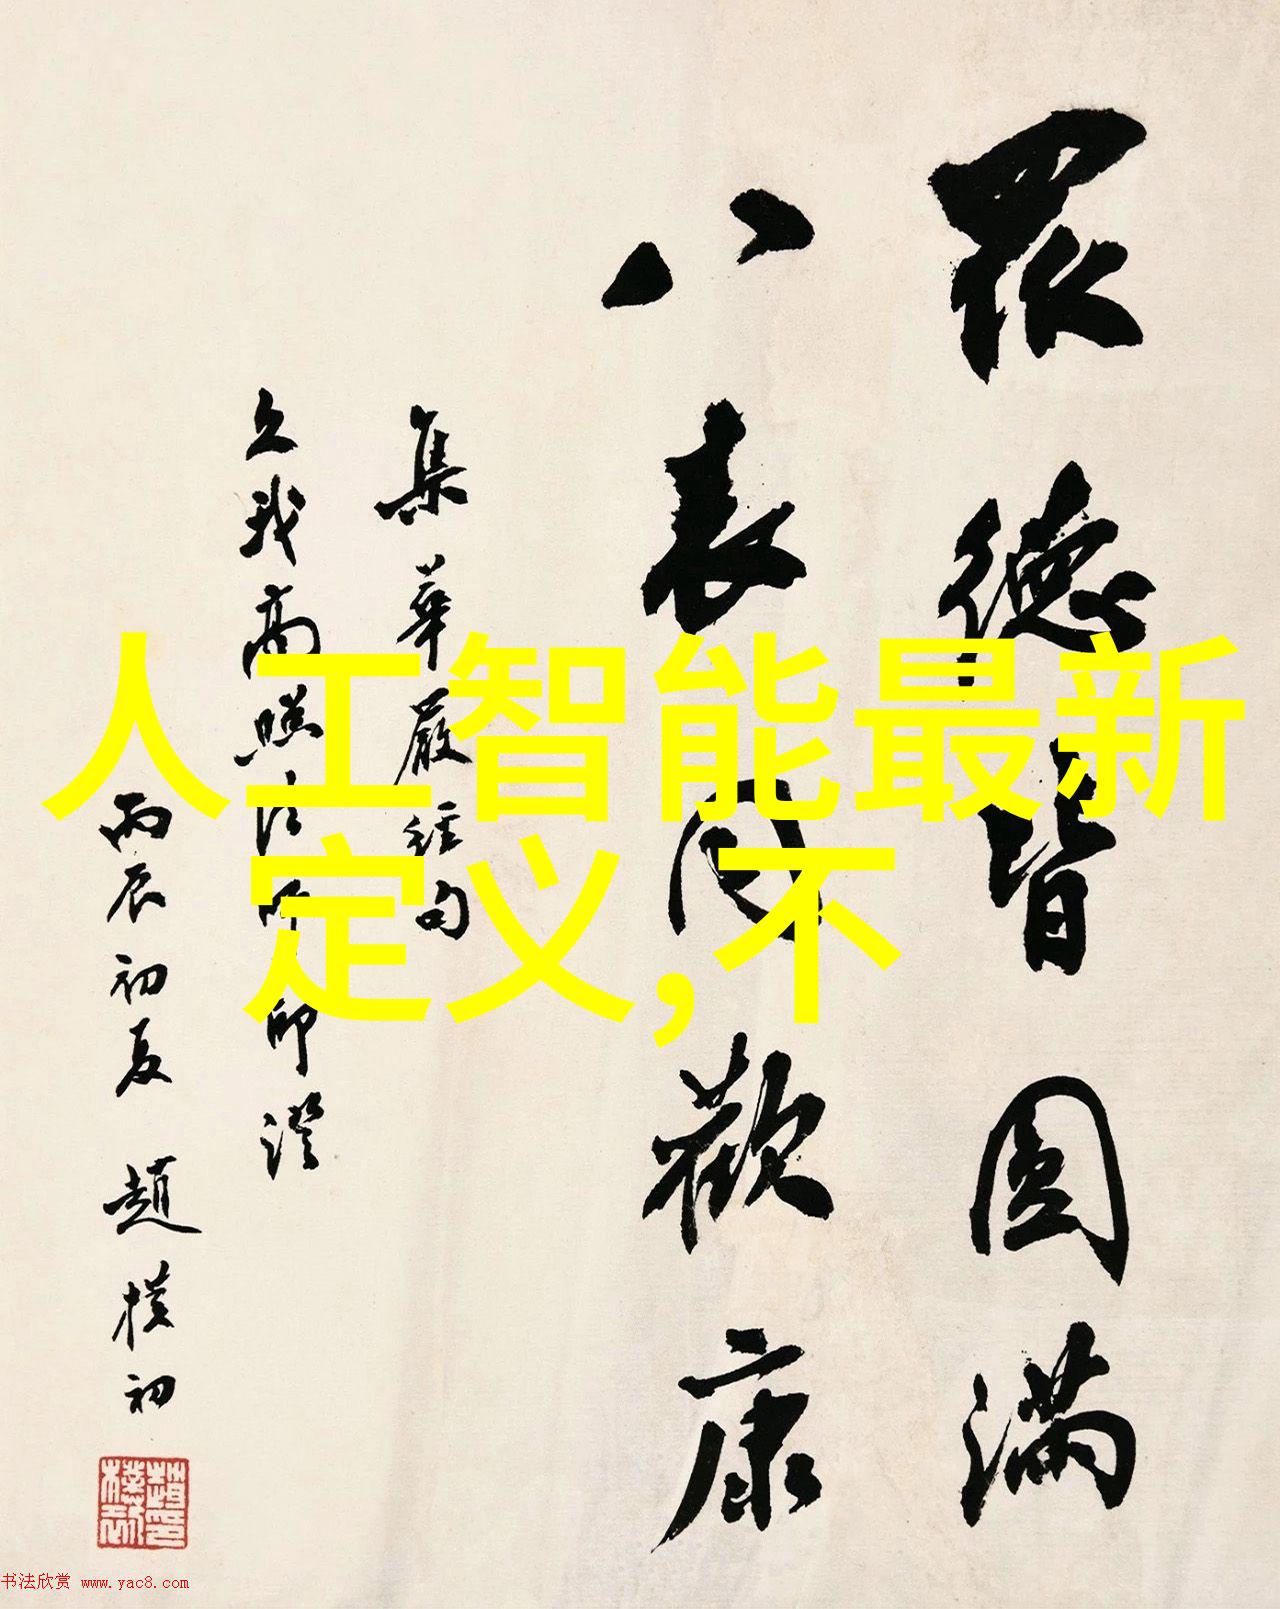 人工智能最新
定义,不
眾德皆圓滿
八表同歡康
集華嚴經句
久我高照法師印證
丙辰初夏 趙樸初
书法欣赏 www.yac8.com